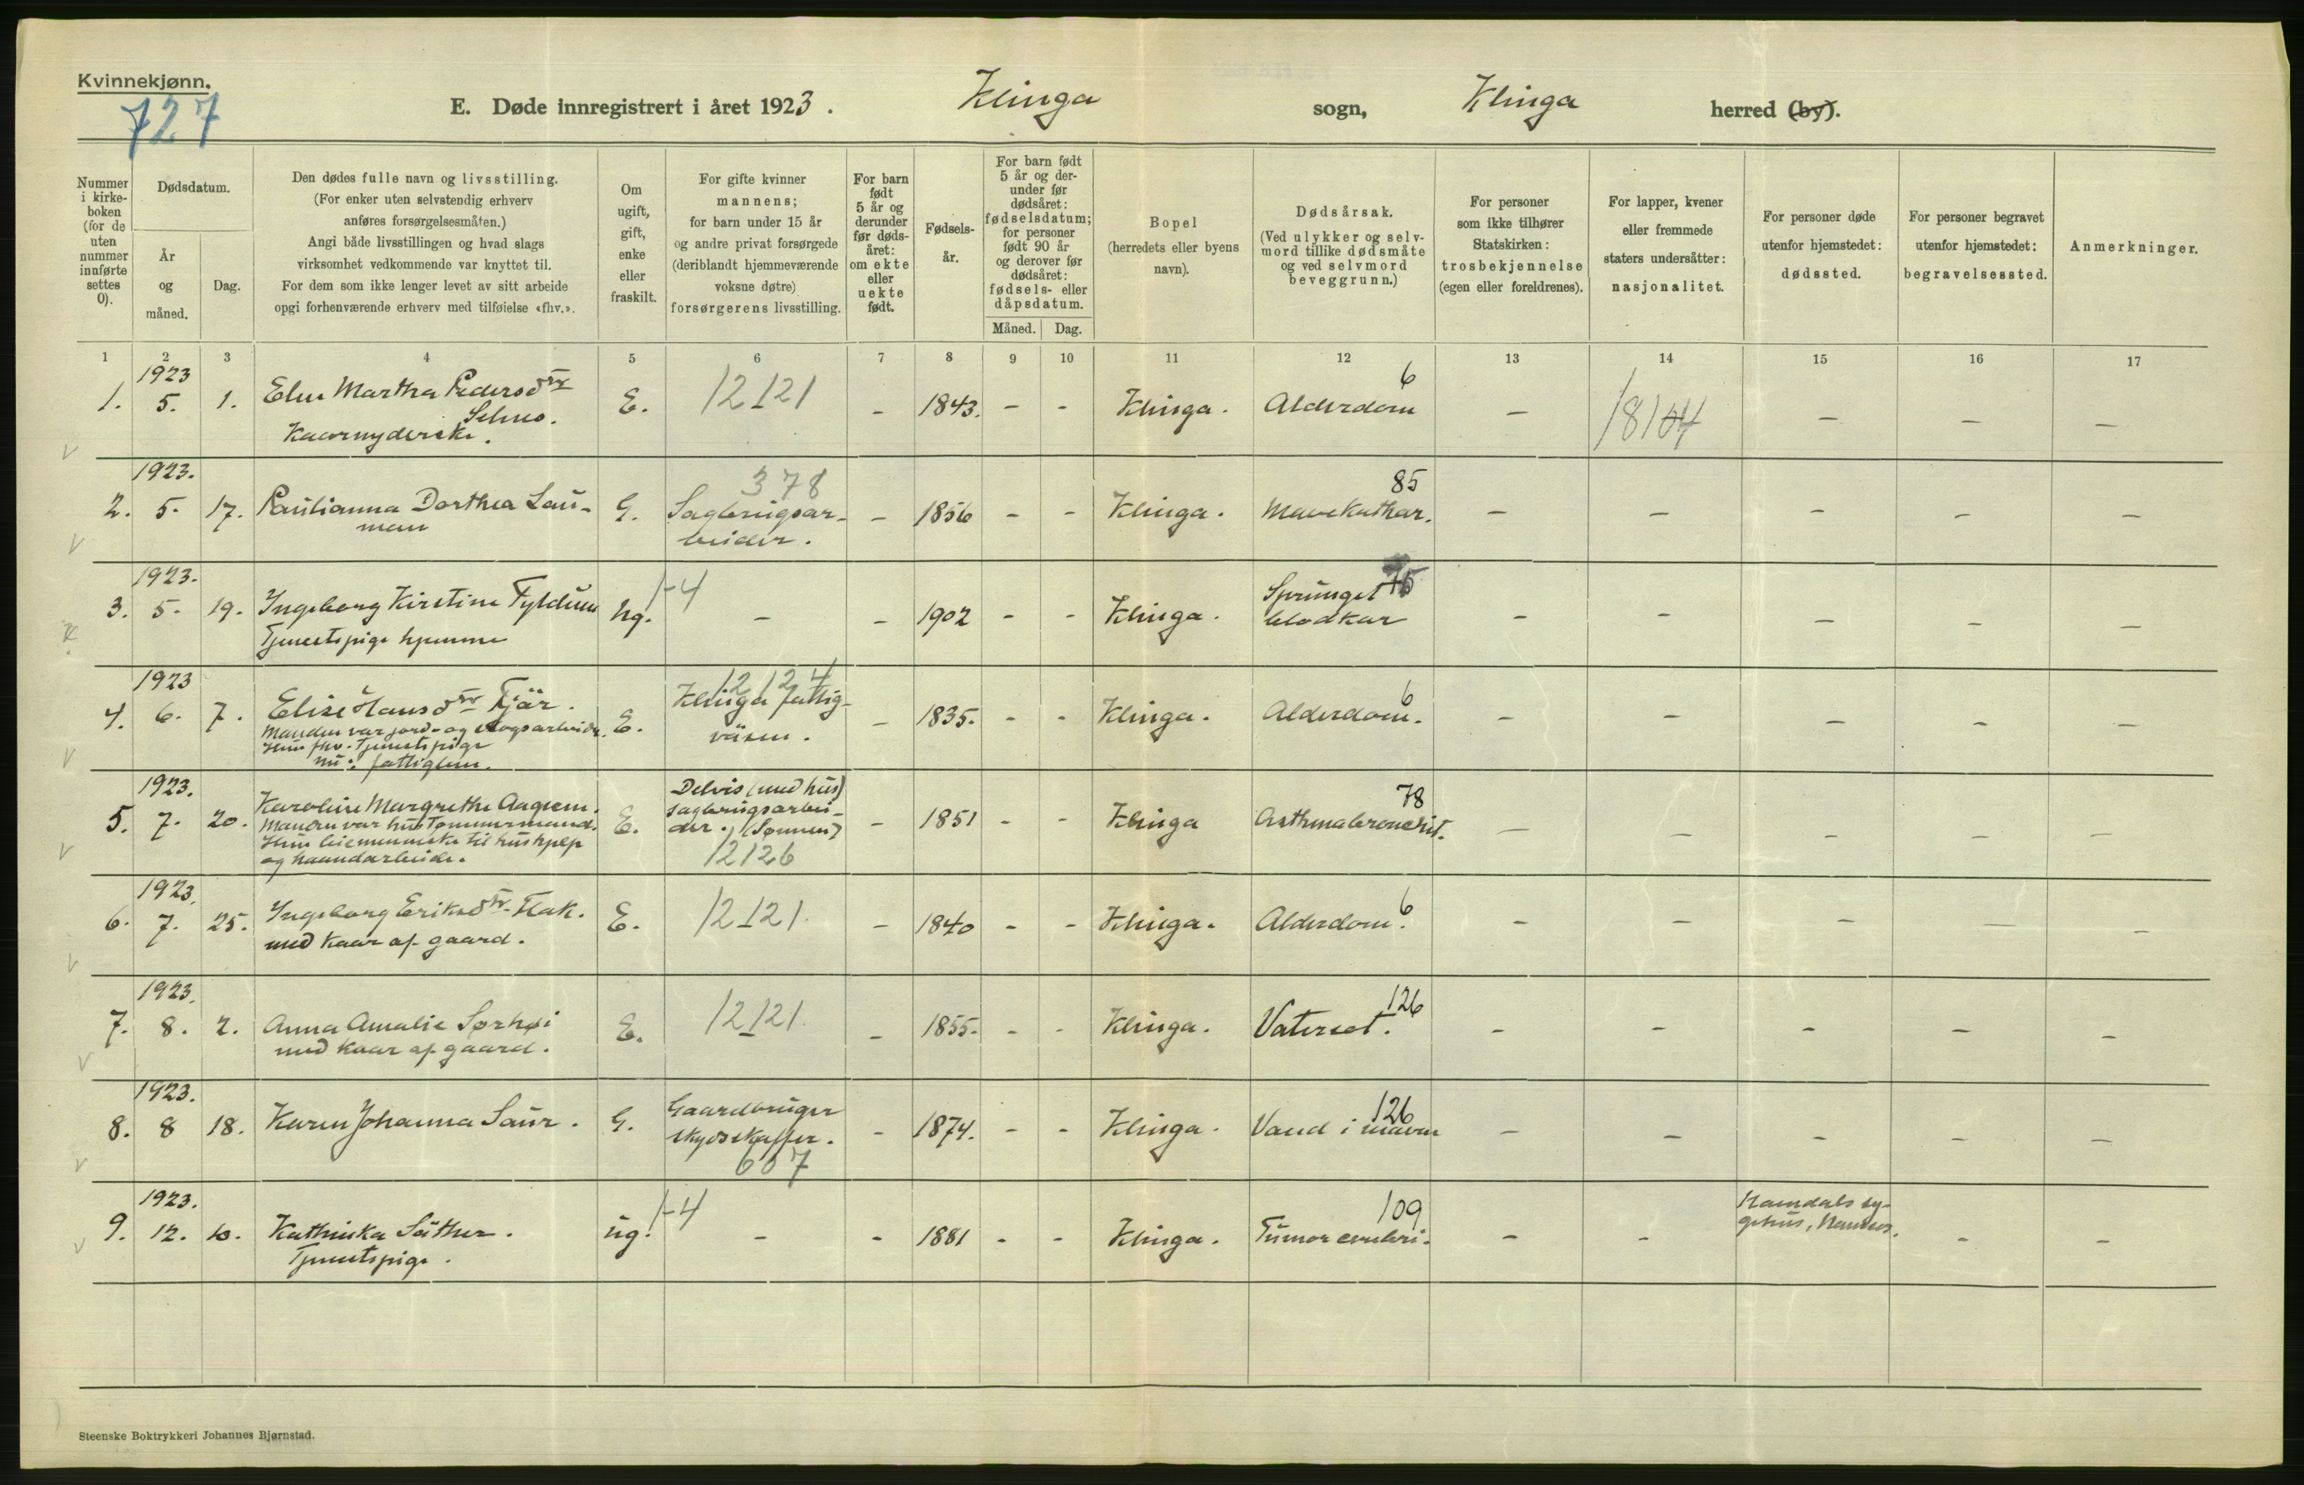 Kvinnekjønn.
727
E. Døde innregistrert i året 1923. Klinga sogn, Klinga herred (by).
Nummer i kirkeboken (for de uten nummer innførte settes 0).
Dødsdatum.
År og måned.
Dag.
Den dødes fulle navn og livsstilling.
(For enker uten selvstendig erhverv
anføres forsørgelsesmåten.)
Angi både livsstillingen og hvad slags
virksomhet vedkommende var knyttet til.
For dem som ikke lenger levet av sitt arbeide
opgi forhenværende erhverv med tilføielse «fhv.».
Om
ugift,
gift,
enke
eller
fraskilt.
For gifte kvinner
mannens;
for barn under 15 år
og andre privat forsørgede
(deriblandt hjemmeværende
voksne døtre)
forsørgerens livsstilling.
For barn
født
5 år og
derunder
før døds-
året:
om ekte
eller
uekte
født.
Fødsels-
år.
For barn født
5 år og der-
under før
dødsåret:
fødselsdatum;
for personer
født 90 år
og derover før
dødsåret:
fødsels- eller
dåpsdatum.
Måned. Dag.
Bopel
(herredets eller byens
navn).
Dødsårsak.
(Ved ulykker og selv-
mord tillike dødsmåte
og ved selvmord
beveggrunn.)
For personer
som ikke tilhører
Statskirken:
trosbekjennelse
(egen eller foreldrenes).
For lapper, kvener
eller fremmede
staters undersåtter:
nasjonalitet.
For personer døde
utenfor hjemstedet:
dødssted.
For personer begravet
utenfor hjemstedet:
begravelsessted.
Anmerkninger.
1 2 3 4 5 6 7 8 9 10 11 12 13 14 15 16 17
1923 6
1. 5. 1. Elen Martha Pedersdtr E. 12121 - 1843. - - Klinga. Alderdom - 18104 - - -
Selnes.
1923. 378 85
2. 5. 17. Paulianna Dorthea Lau- G. Sagbrugsar- - 1856 - - Klinga. Mavekathar. - - - - -
man beider.
1923. 1-4 75
3. 5. 19. Ingeborg Kirstine Fyldum ug. - - 1902 - - Klinga. Sprunget - - - - -
Tjenestpige hjemme blodkar
1923 12124 6
4. 6. 7. Elise Hansdtr Tjär. E. Klinga fattig- - 1835. - - Klinga. Alderdom. - - - - -
Manden var jord- og skogsarbeider. väsen.
Hun fhv. Tjenestpige
nu: fattiglem.
1923. Delvis (med hus) 78
5. 7. 20. Karoline Margrethe Aagsem. E. sagbrugsarbei- - 1851 - - Klinga Asthmabronchit. - - - - -
Manden var hustømmermand. der. (Sønnen)
Hun leiemenneske til hushjelp 12126
og haandarbeide.
1923. 6
6. 7. 25. Ingeborg Eriksdtr. Flak. E. 12121. - 1840 - - Klinga. Alderdom. - - - - -
med kaar af gaard.
1923. 126
7. 8. 2. Anna Amalie Sørhøi E. 12121. - 1855. - - Klinga. Vatersot. - - - - -
med kaar af gaard.
1923. 126
8. 8 18. Karen Johanna Saur. G. Gaardbruger - 1874. - - Klinga. Vand i maven - - - - -
skydsskaffer.
607
1923. 1-4 109 Namdals sy-
9. 12. 10. Kathinka Säther. ug. - - 1881 - - Klinga. Tumor cerebri. - - gehus, Namsos. - -
Tjenestpige.
Steenske Boktrykkeri Johannes Bjørnstad.